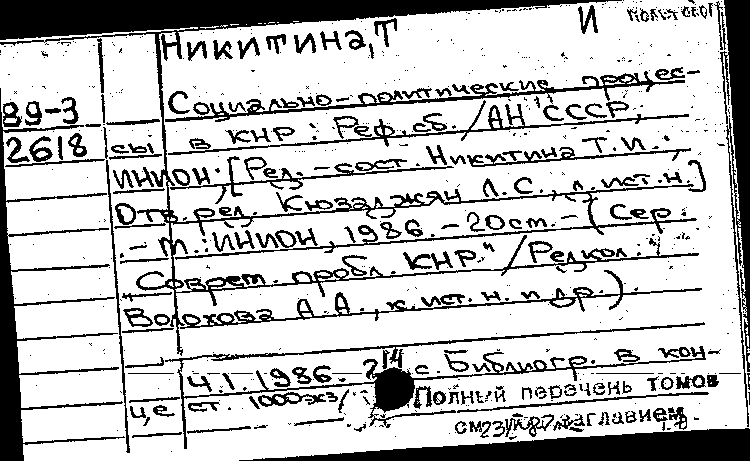 И
Никитина, Т
89-3
2618
Социально-политические процес-
сы в КНР: Реф. сб. / АН СССР,
ИНИОН; [Ред.-сост. Никитина Т.И.;
Отв. ред. Кюзаджян Л.С., д. ист. н.]
.- М.: ИНИОН, 1986. - 20см. - (Сер.
"Соврем. пробл. КНР" / Редкол.:
Волохова А.А., к. ист. н. и др.).
Ч.1. 1986. 214 с. Библиогр. в кон-
це ст. 1000 экз
Полный перечень томов
см заглавием